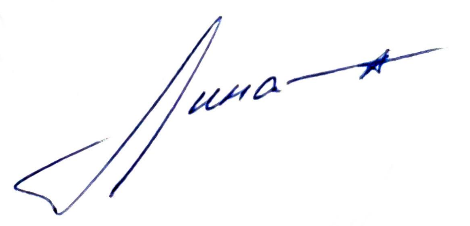 Лина